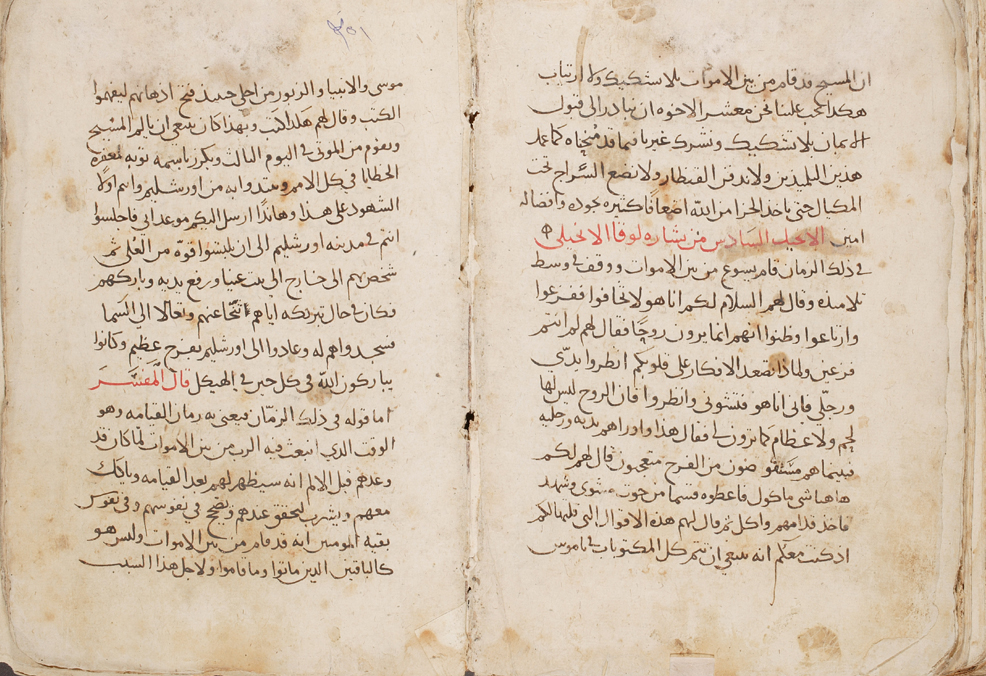 ان المسيح قد قام من بين الاموات بلا تشكيك ولا ارتياب
هكذا يجب علينا نحن معشر الاخوه ان نبادر الى قبول
الايمان بلا تشكيك ونشرك غيرنا فيما قد مُنحناه كما عمد
هذين التلميذين ولا ندفن القنطار ولا نضع السَّراج تحت
المكيال حتى ناخذ الجزا من الله اضعافًا كثيره بجوده وافضاله
امين الانجيل السَادس من بشاره لوقا الانجيلى
فى ذلك الزمان قام يسوع من بين الاموات ووقف فى وسط
تلاميذه وقال لهم السلام لكم انا هو لا تخافوا ففزعوا
وارتاعوا وظنوا انهم انما يرون روحًا فقال لهم لم انتم
فزعين ولماذا تصعد الافكار على قلوبكم انظروا يدَّى
ورجلَّى فانى انا هو فتشونى وانظروا فان الروح ليس لها
لحم ولا عظام كما ترون لى فقال هذا واوراهم يديه ورجليه
فبينما هم صون من الفرح متعجبون قال لهم لكم
هاهنا شى ماكول فاعطوه قسما من حوت مشوى وشهد
فاخذ قدامهم واكل ثم قال لهم هذه الاقوال التى قلتها لكم
اذ كنت معكم انه ينبغى ان يتم كل المكتوبات فى ناموس
موسى والانبيا والزبور من اجلى حينيذ فتح اذهانهم ليفهموا
الكتب وقال لهم هكذا كتب وبهذا كان ينبغى ان يالم المسْيح
ويقوم من الموتى فى اليوم الثالث ويكرز باسمه توبه لمغفرة
الخطايا فى كل الامم ويبتدوا به من اورشليم وانتم اولا
الشهود على هذا وهاانذا ارسل اليكم موعد ابى فاجلسوا
انتم فى مدينه اورشليم الى ان تلبسْوا قوة من العُلى ثم
شخص بهم الى خارج الى بيت عنيا ورفع يديه وباركهم
فكان فى حال تبريكه اياهم تنحَّا عنهم وتعالا الى السَما
فسجدوا هم له وعادوا الى اورشليم بفرح عظيم وكانوا
يباركون الله فى كل حين فى الهيكل قال المفَسَّر
اما قوله فى ذلك الزمّان فيعنى به زمان القيامه وهو
الوقت الدى انبعث فيه الرب من بين الاموات لما كان قد
وعدهم قبل الالام انه سيظهر لهم بعد القيامه وياكل
معهم ويشرب ليتحقق عندهم ويصّح فى نفوسهم وفى نفوس
بقيه المومنين انه قد قام من بين الاموات وليس هو
كالباقين الدين ماتوا وما قاموا ولاجل هذا السبب